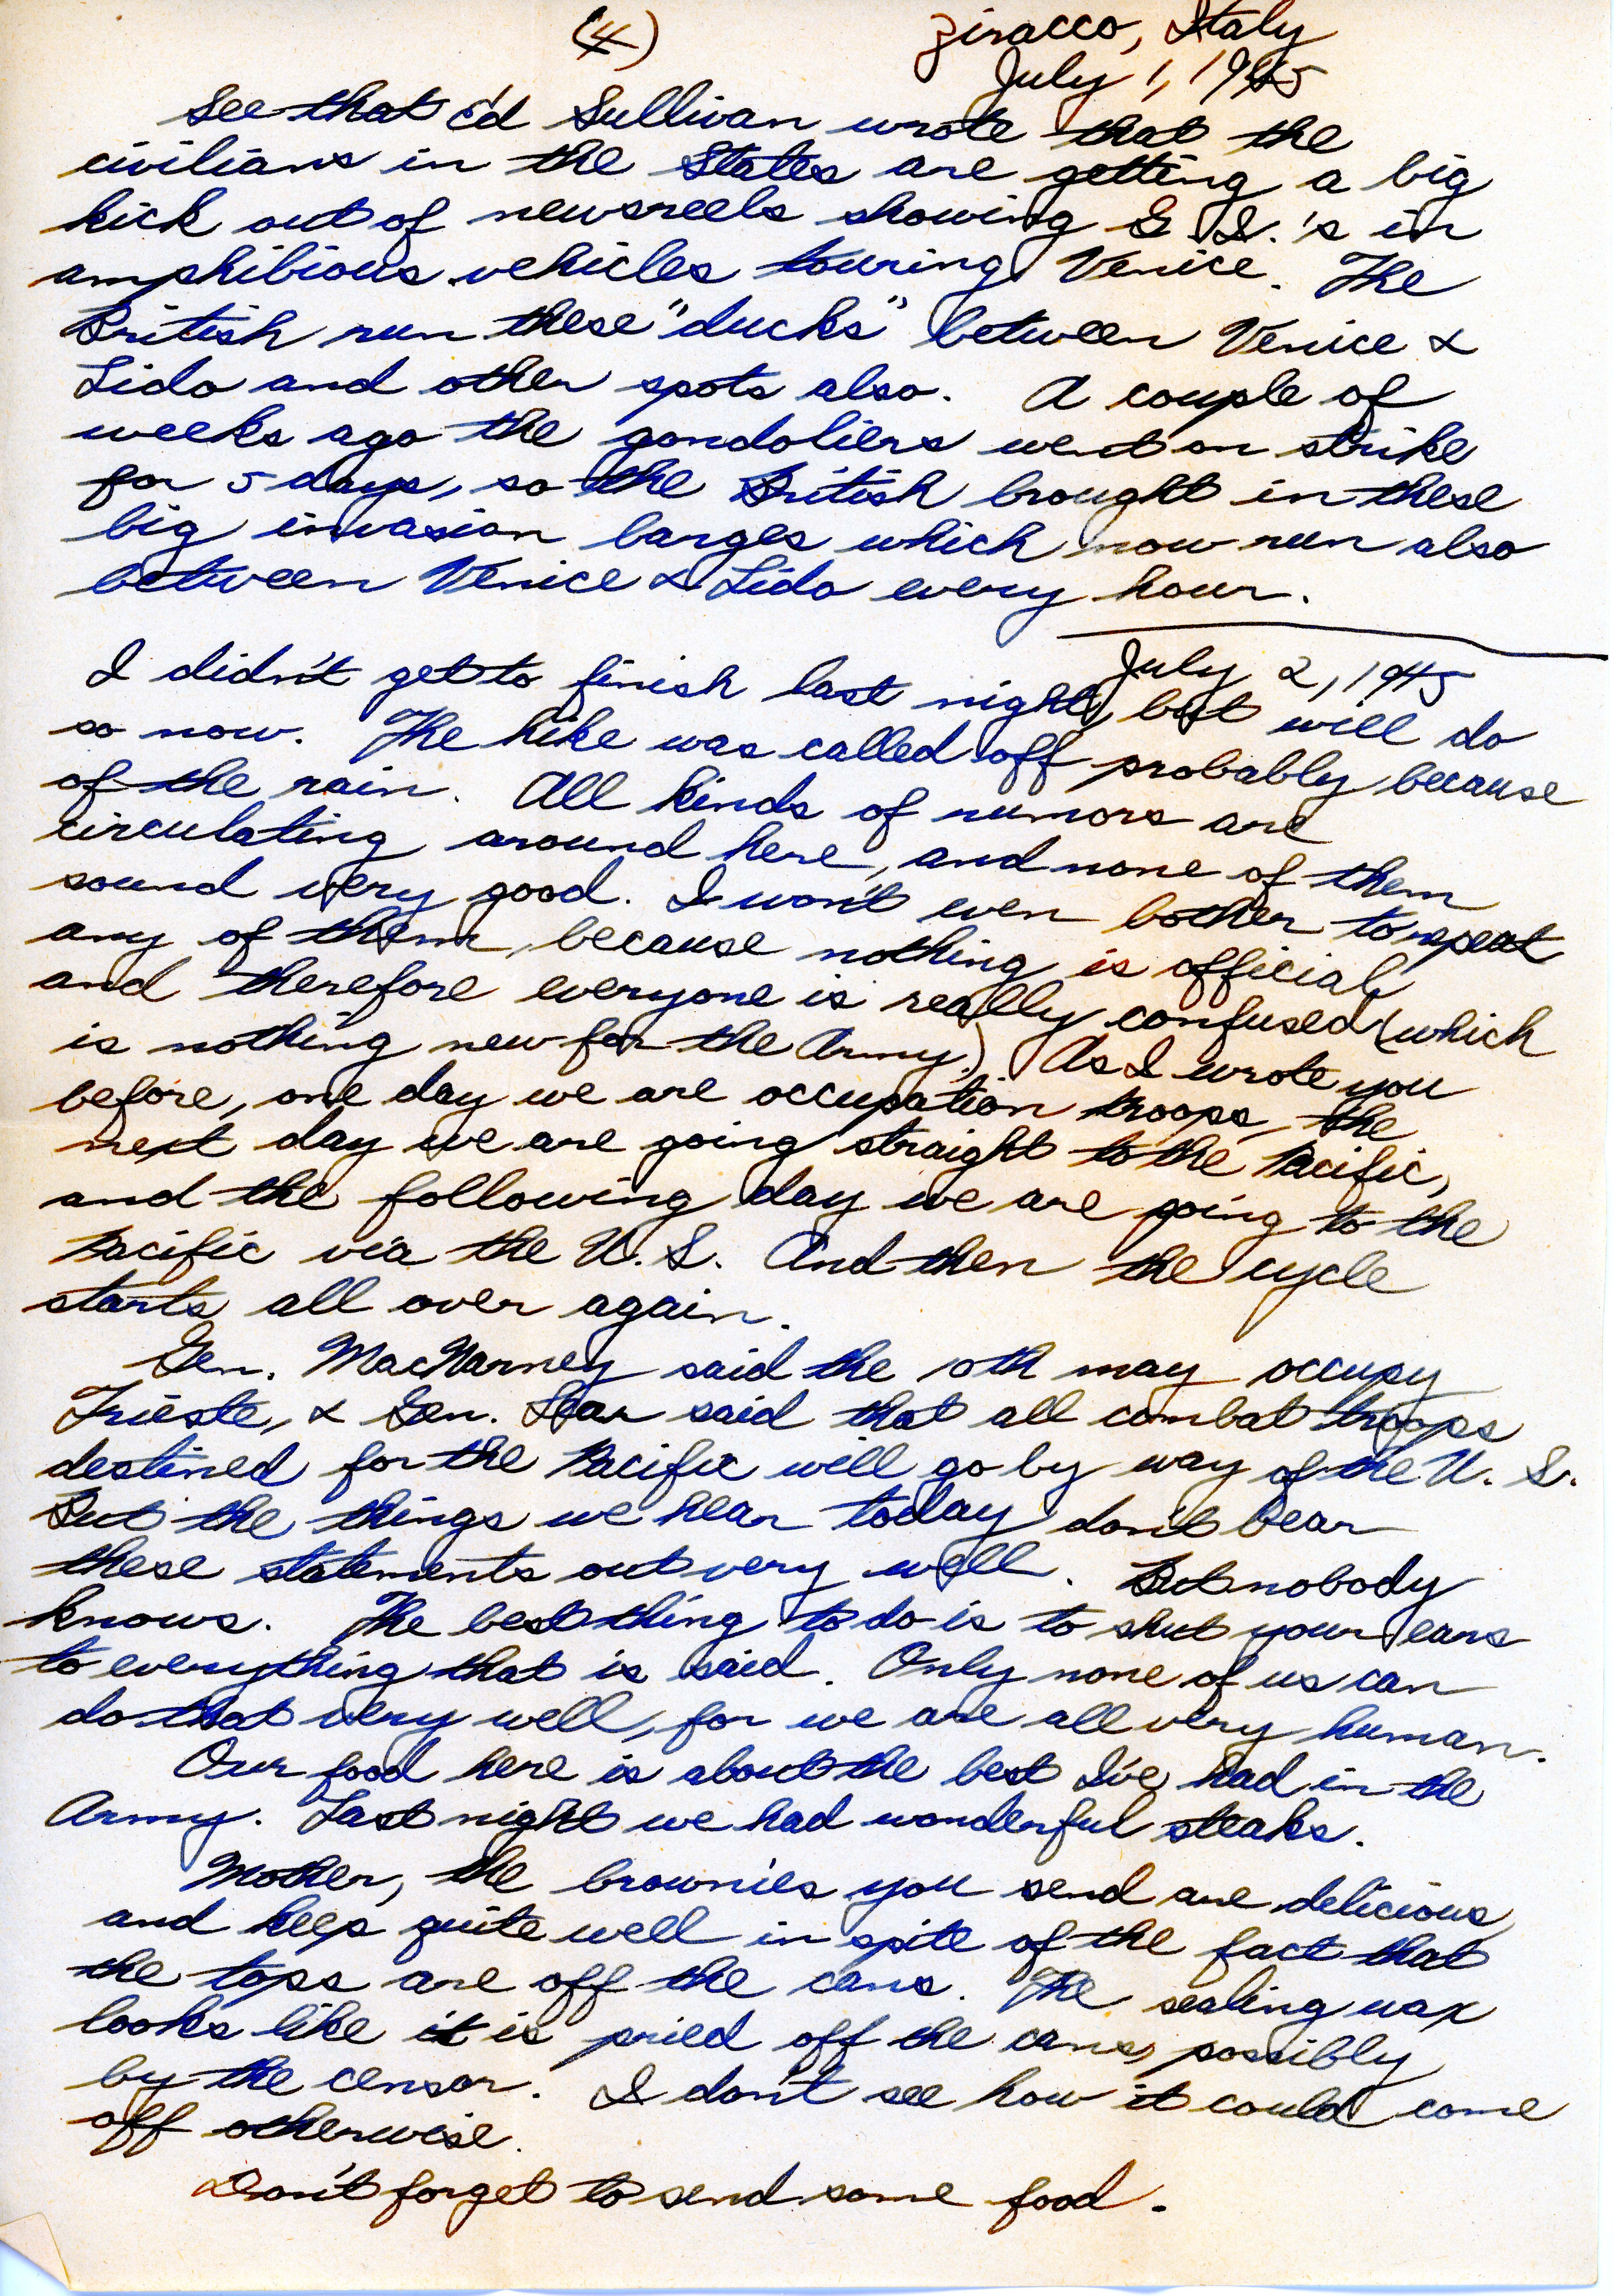 (4)
Ziracco, Italy
July 1, 1945
See that Ed Sullivan wrote that the
civilians in the States are getting a big
kick out of newsreels showing G.I.'s in
amphibious vehicles touring Venice. The
British run these "ducks" between Venice &
Lido and other spots also. A couple of
weeks ago the gondoliers went on strike
for 5 days, so the British brought in these
big invasion barges which now run also
between Venice & Lido every hour.
July 2, 1945
I didn't get to finish last night, but will do
so now. The hike was called off probably because
of the rain. All kinds of rumors are
circulating around here, and none of them
sound very good. I won't even bother to repeat
any of them, because nothing is official,
and therefore everyone is really confused (which
is nothing new for the Army.) As I wrote you
before, one day we are occupation troops, the
next day we are going straight to the Pacific,
and the following day we are going to the
Pacific via the U.S. And then the cycle
starts all over again.
Gen. MacNarney said the 10th may occupy
Trieste, & Gen. Lear said that all combat troops
destined for the Pacific will go by way of the U.S.
But the things we hear today don't bear
these statements out very well. But nobody
knows. The best thing to do is to shut your ears
to everything that is said. Only none of us can
do that very well, for we are all very human.
Our food here is about the best I've had in the
Army. Last night we had wonderful steaks.
Mother, the brownies you send are delicious,
and keep quite well in spite of the fact that
the tops are off the cans. The sealing wax
looks like it is pried off the cans, possibly
by the censor. I don't see how it could come
off otherwise.
Don't forget to send some food.